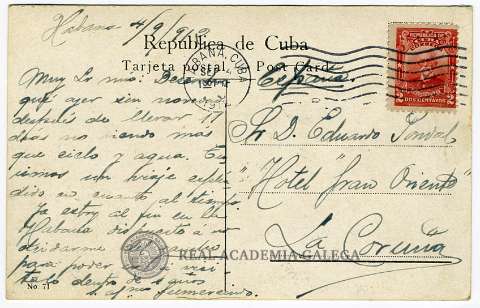 Habana 4/9/912
República de Cuba
Tarjeta postal Post Card
HABANA, CUBA
SEP
España
Muy Sr mio: Desem
qué ayer sin novedad
después de llevar 17
dias no viendo más
que cielo y agua. Tu
vimos un viaje esplen
dido en cuanto al tiempo
Ya estoy al fin en la
Habana dispuesto á no
olvidarme
para poder
dentro de
Gumersindo
Sr. D. Eduardo Pondal
Hotel "Gran Oriente"
La Coruña
REAL ACADEMIA GALEGA
No 71
2 DOS CENTAVOS 2